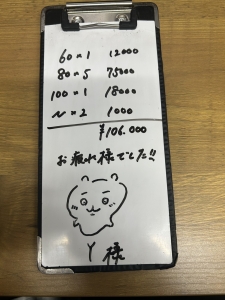 60×1 12000
80×5 75000
100×1 18000
N×2 1000
¥106.000
お疲れ様でした!!
Y 様